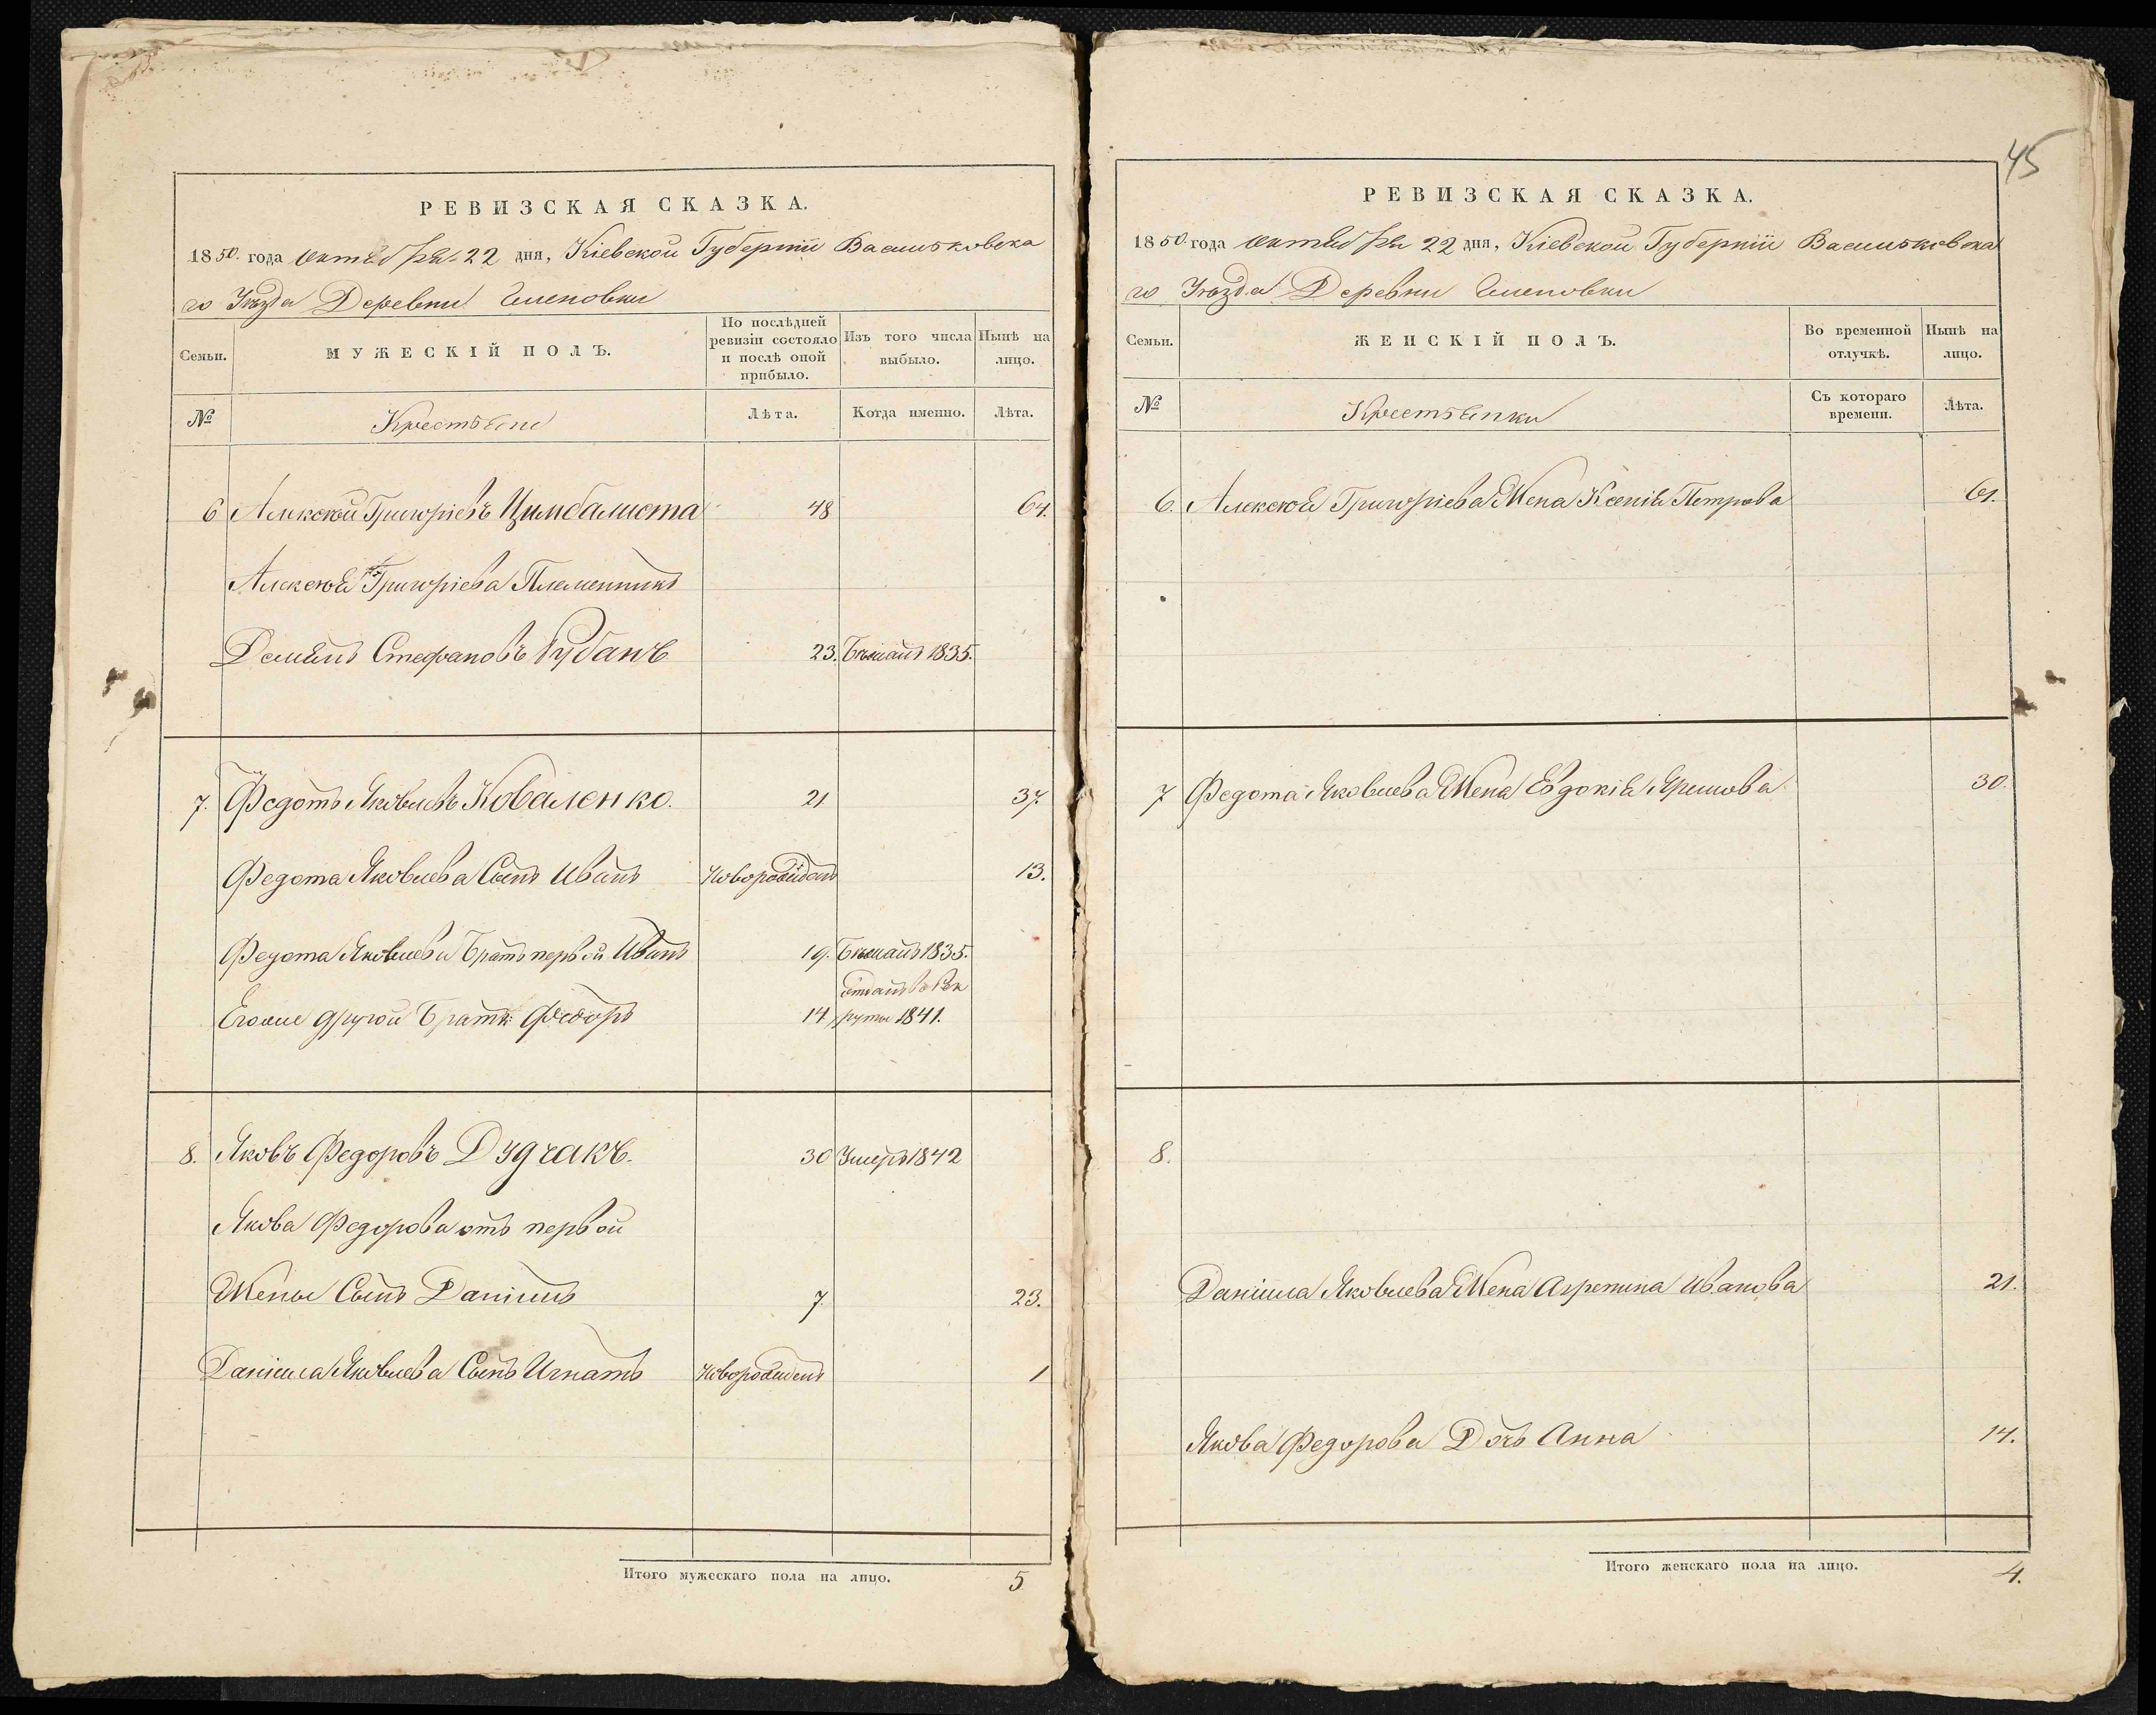 РЕВИЗСКАЯ СКАЗКА.
1850. года Октября 22 дня, Кіевской Губерніи Васильковска
го Уѣзда Деревни
Семьи.
МУЖЕСКІЙ ПОЛЪ.
По послѣдней ревизіи состояло и послѣ оной прибыло.
Изъ того числа выбыло.
Нынѣ на лицо.
№
Крестьяне
Лѣта.
Когда именно.
Лѣта.
6 Алексѣй Григоріевъ Цимбалиста 48 64.
Алексѣя Григоріева Племенникъ
Демянъ Стефановъ Рубанъ 23. Бѣжалъ 1835.
7. Федотъ Яковлевъ Коваленко. 21 37.
Федота Яковлева Сынъ Иванъ Новорожденъ 13.
Федота Яковлева Братъ первой Иванъ 19. Бѣжалъ 1835.
отданъ въ Рек
Егоже другой Братъ Федоръ 14 руты 1841.
8. Яковъ Федоровъ Дудчакъ. 30 Умеръ 1842
Якова Федорова отъ первой
Жены Сынъ Даніилъ 7. 23.
Даніила Яковлева Сынъ Игнатъ Новорожденъ 1
Итого мужескаго пола на лицо. 5
45
РЕВИЗСКАЯ СКАЗКА.
1850. года Октября 22 дня, Кіевской Губерніи Васильковска
го Уѣзда Деревни
Семьи.
ЖЕНСКІЙ ПОЛЪ.
Во временной отлучкѣ.
Нынѣ на лицо.
№
Крестьянки
Съ котораго времени.
Лѣта.
6. Алексѣя Григоріева Жена Ксенія Петрова 61.
7 Федота Яковлева Жена Евдокія 30.
8.
Даніила Яковлева Жена Агрепина Иванова 21.
Якова Федорова Дочь Анна 14.
Итого женскаго пола на лицо. 4.